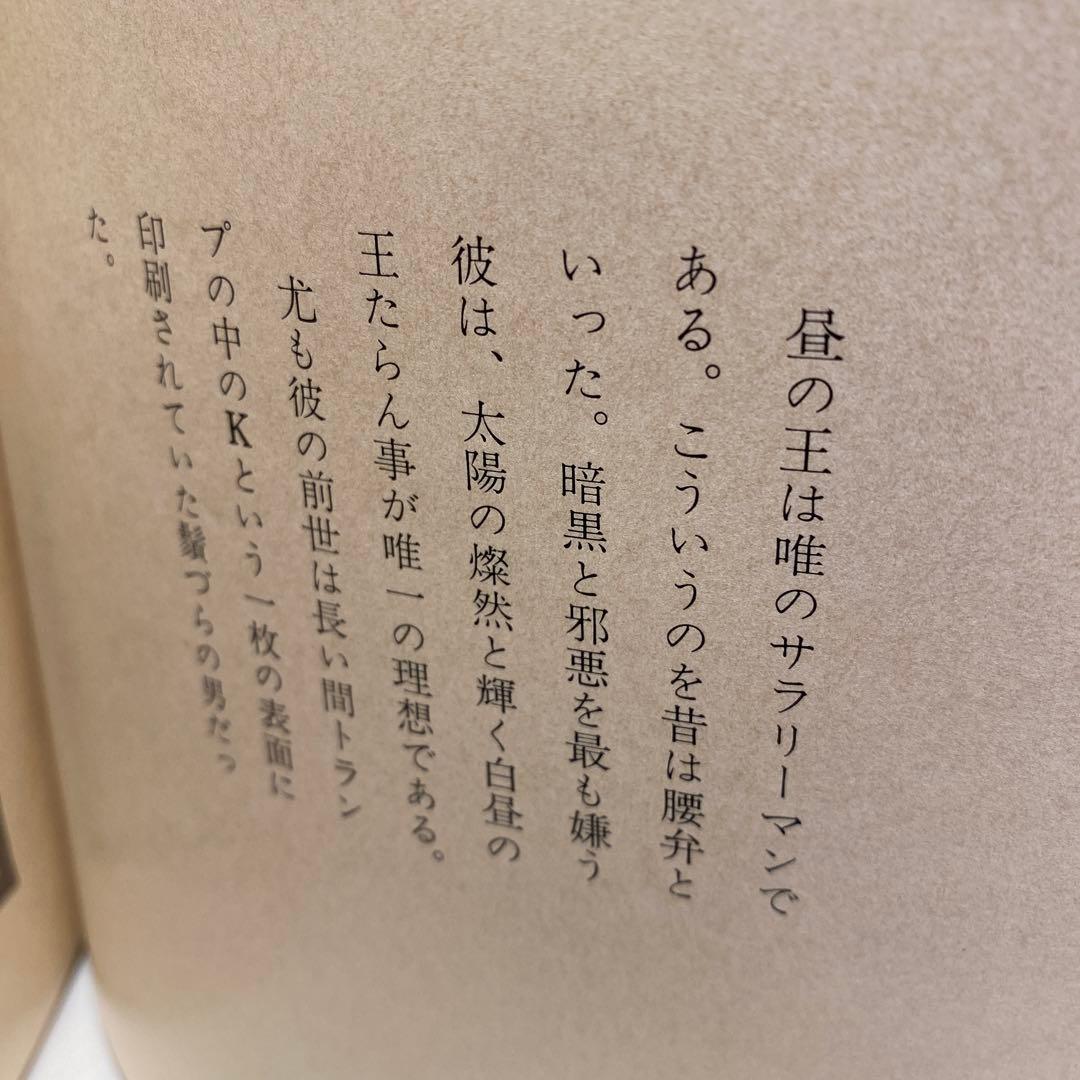 昼の王は唯のサラリーマンで
ある。こういうのを昔は腰弁と
いった。暗黒と邪悪を最も嫌う
彼は、太陽の燦然と輝く白昼の
王たらん事が唯一の理想である。
尤も彼の前世は長い間トラン
プの中のKという一枚の表面に
印刷されていた鬚づらの男だっ
た。